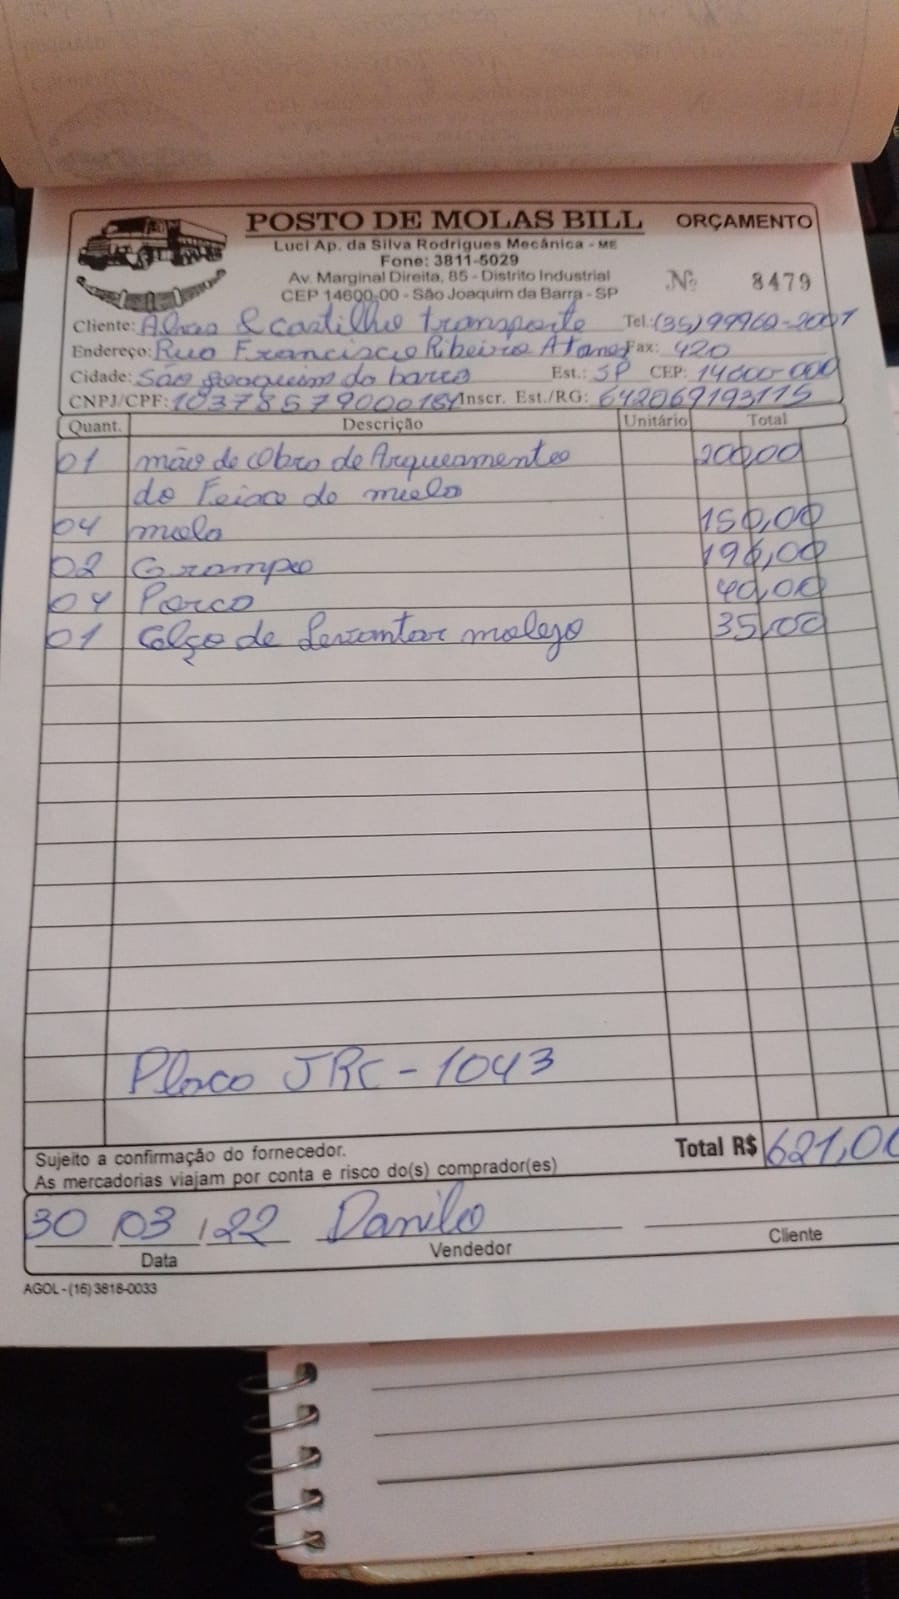 POSTO DE MOLAS BILL ORÇAMENTO
Luci Ap. da Silva Rodrigues Mecânica - ME
Fone: 3811-5029
Av. Marginal Direita, 85 - Distrito Industrial
CEP 14600-00 - São Joaquim da Barra - SP
Nº 8479
Cliente: & Castilho transporte Tel.: (35) 99960-2007
Endereço: Rua Francisco Ribeiro Fax: 420
Cidade: São Joaquim da barra Est.: SP CEP: 14600-000
CNPJ/CPF: Inscr. Est./RG: 642069193115
Quant. Descrição Unitário Total
01 mão de Obra de Arqueamento 200,00
do Feixe de mola
04 mola 150,00
02 Grampo 196,00
04 Porca 40,00
01 Calço de Levantar molejo 35,00
Placa JRC - 1043
Sujeito a confirmação do fornecedor.
As mercadorias viajam por conta e risco do(s) comprador(es)
Total R$ 621,00
30 / 03 / 22 Danilo
Data Vendedor Cliente
AGOL - (16) 3818-0033